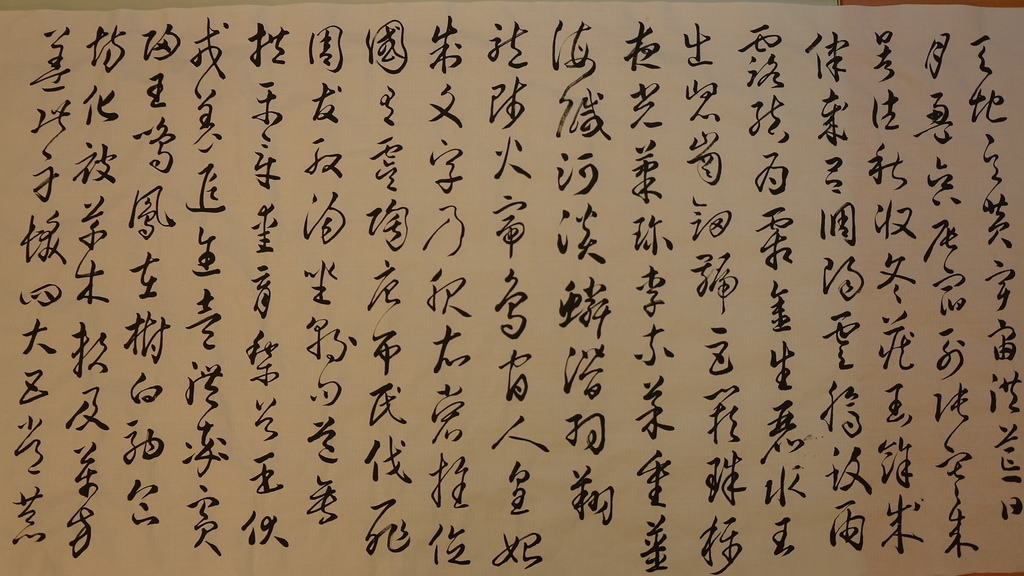 天地玄黃宇宙洪荒日
月盈昃辰宿列張寒來
暑往秋收冬藏閏餘成
律歲呂調陽雲騰致雨
露結為霜金生麗水玉
出崑崗劍號巨闕珠稱
夜光菓珍李柰菜重薑
海鹹河淡鱗潛羽翔
龍師火帝鳥官人皇始
制文字乃服衣裳推位
國有虞陶唐弔民伐罪
周發殷湯坐朝問道垂
拱平章愛育黎首臣伏
戎羌遐邇壹體率賓
歸王鳴鳳在樹白駒食
場化被草木賴及萬方
蓋此身髮四大五常恭